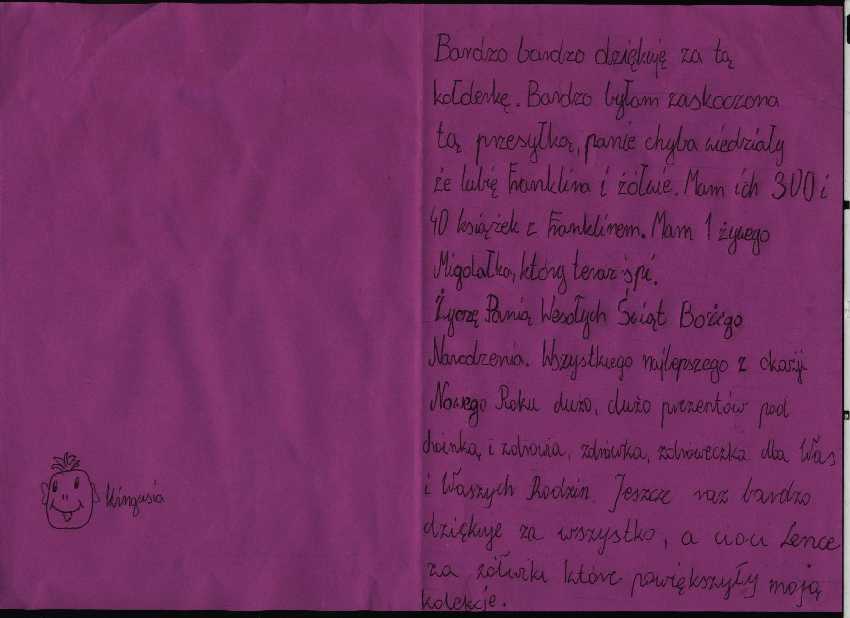 Bardzo bardzo dziękuję za tą
kołderkę. Bardzo byłam zaskoczona
tą przesyłką, panie chyba wiedziały
że lubię Franklina i żółwie. Mam ich 300 i
40 książek z Franklinem. Mam 1 żywego
Migdałka, który teraz śpi.
Życzę Panią Wesołych Świąt Bożego
Narodzenia. Wszystkiego najlepszego z okazji
Nowego Roku dużo, dużo prezentów pod
choinką i zdrowia, zdrówka, zdróweczka dla Was
i Waszych Rodzin. Jeszcze raz bardzo
dziękuje za wszystko, a cioci Lence
za żółwiki które powiększyły moją
kolekcje.
Kingusia